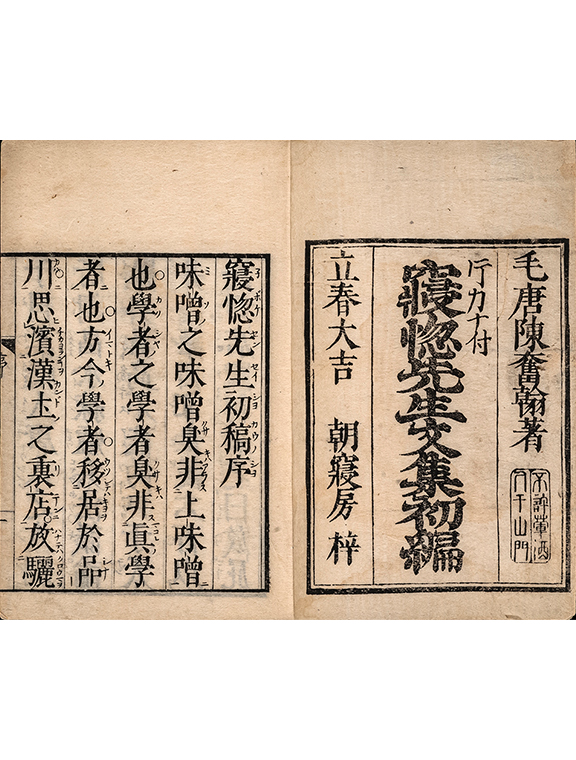 毛唐陳奮翰著
不許葷酒
入于山門
片カナ付
寢惚先生文集初編
立春大吉 朝寢房 梓
寢惚先生初稿序
味噌之味噌臭非上味噌
也學者之學者臭非眞學
者也方今學者移居於品
川思濱漢土之裏店放驪
序